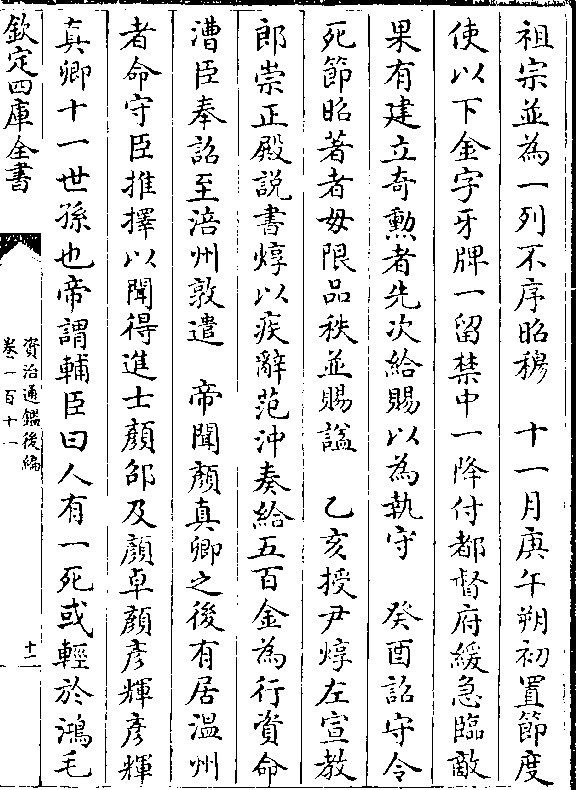 祖宗並為一列不序昭穆　十一月庚午朔初置節度
使以下金字牙牌一留禁中一降付都督府緩急臨敵
果有建立奇勲者先次給賜以為執守　癸酉詔守令
死節昭著者毋限品秩並賜諡　乙亥授尹焞左宣教
郎崇正殿説書焞以疾辭范沖奏給五百金為行資命
漕臣奉詔至涪州敦遣　帝聞顔真卿之後有居温州
者命守臣推擇以聞得進士顔邵及顔卓顔彦輝彦輝
真卿十一世孫也帝謂輔臣曰人有一死或輕於鴻毛
欽定四庫全書
資治通鑑後編
卷一百十一
十二